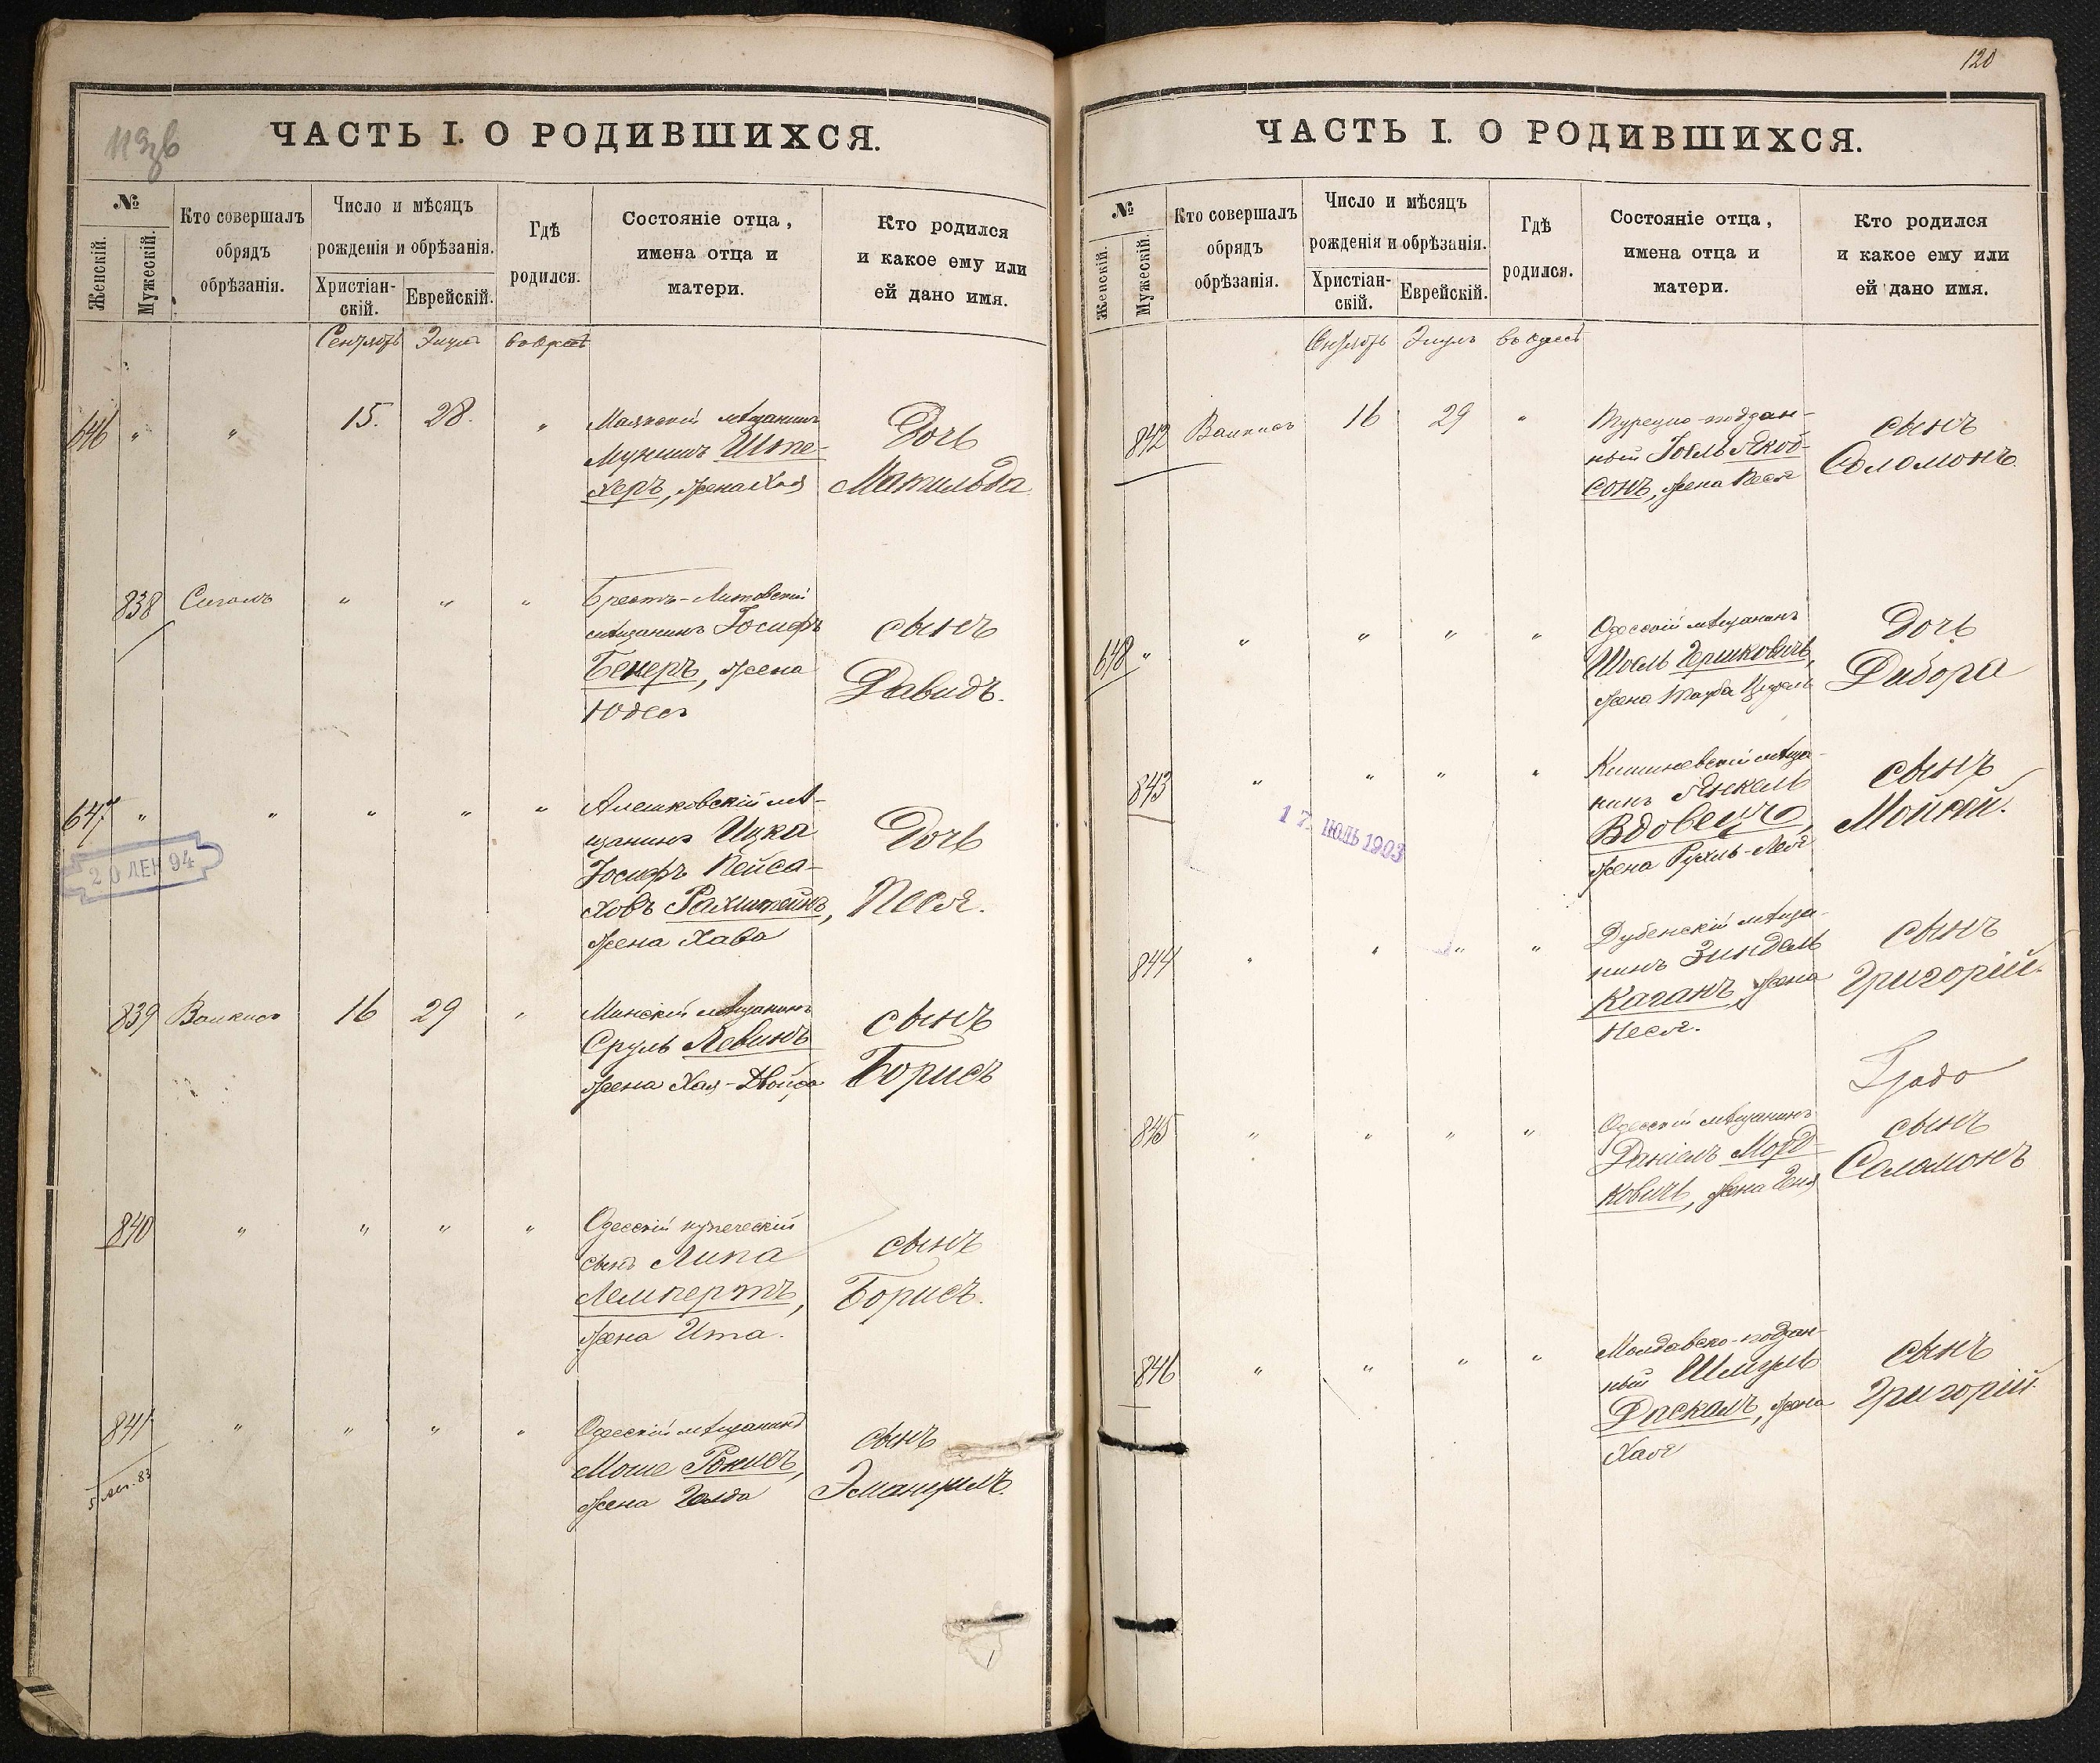 ЧАСТЬ I. О РОДИВШИХСЯ.
№
Женскій.
Мужескій.
Кто совершалъ
обрядъ
обрѣзанія.
Число и мѣсяцъ
рожденія и обрѣзанія.
Христіан-
скій.
Еврейскій.
Гдѣ
родился.
Состояніе отца,
имена отца и
матери.
Кто родился
и какое ему или
ей дано имя.
Сентябрь Элулъ
646 " " 15. 28. "
мѣщанинъ
Шпе-
херъ, жена Хая
Дочь
Матильда
838 Сигалъ " " "
Брестъ-Литовскій
мѣщанинъ Іосифъ
Бекеръ, жена
Юдесъ
сынъ
Давидъ.
647 " " " " "
20 ДЕК 94
Алешковскій мѣ-
щанинъ Ицка
Іосифъ Пейса-
ховъ Рахштейнъ,
жена Хава
Дочь
Песя.
839 16 29 "
Минскій мѣщанинъ
Сруль Левинъ
жена Хая-Двойра
сынъ
Борисъ
840 " " " "
Одесскій купеческій
сынъ Липа
Лемпертъ,
жена Ита.
сынъ
Борисъ.
841 " " " "
Одесскій мѣщанинъ
Моше
жена Голда
сынъ
Эмануилъ.
120
ЧАСТЬ I. О РОДИВШИХСЯ.
№
Женскій.
Мужескій.
Кто совершалъ
обрядъ
обрѣзанія.
Число и мѣсяцъ
рожденія и обрѣзанія.
Христіан-
скій.
Еврейскій.
Гдѣ
родился.
Состояніе отца,
имена отца и
матери.
Кто родился
и какое ему или
ей дано имя.
Сентябрь Элулъ
842 16 29 "
Турецко-поддан-
ный Іоель Якоб-
сонъ, жена Песя
сынъ
Соломонъ.
648 " " " " "
Одесскій мѣщанинъ
Гершковичъ,
жена
Дочь
Дибора
843 " " " "
17 ІЮЛЬ 1903
Кишиневскій мѣща-
нинъ Янкель
Вдовецъ,
жена Рухль-Лея
сынъ
Мойсей.
844 " " " "
Дубенскій мѣща-
нинъ Зиндель
Каганъ, жена
Песя.
сынъ
Григорій.
845 " " " "
Одесскій мѣщанинъ
Даніель Морд-
ковичъ, жена Геня
сынъ
Соломонъ
846 " " " "
Молдавско-поддан-
ный Шмуль
Даскалъ, жена
Хая
сынъ
Григорій.